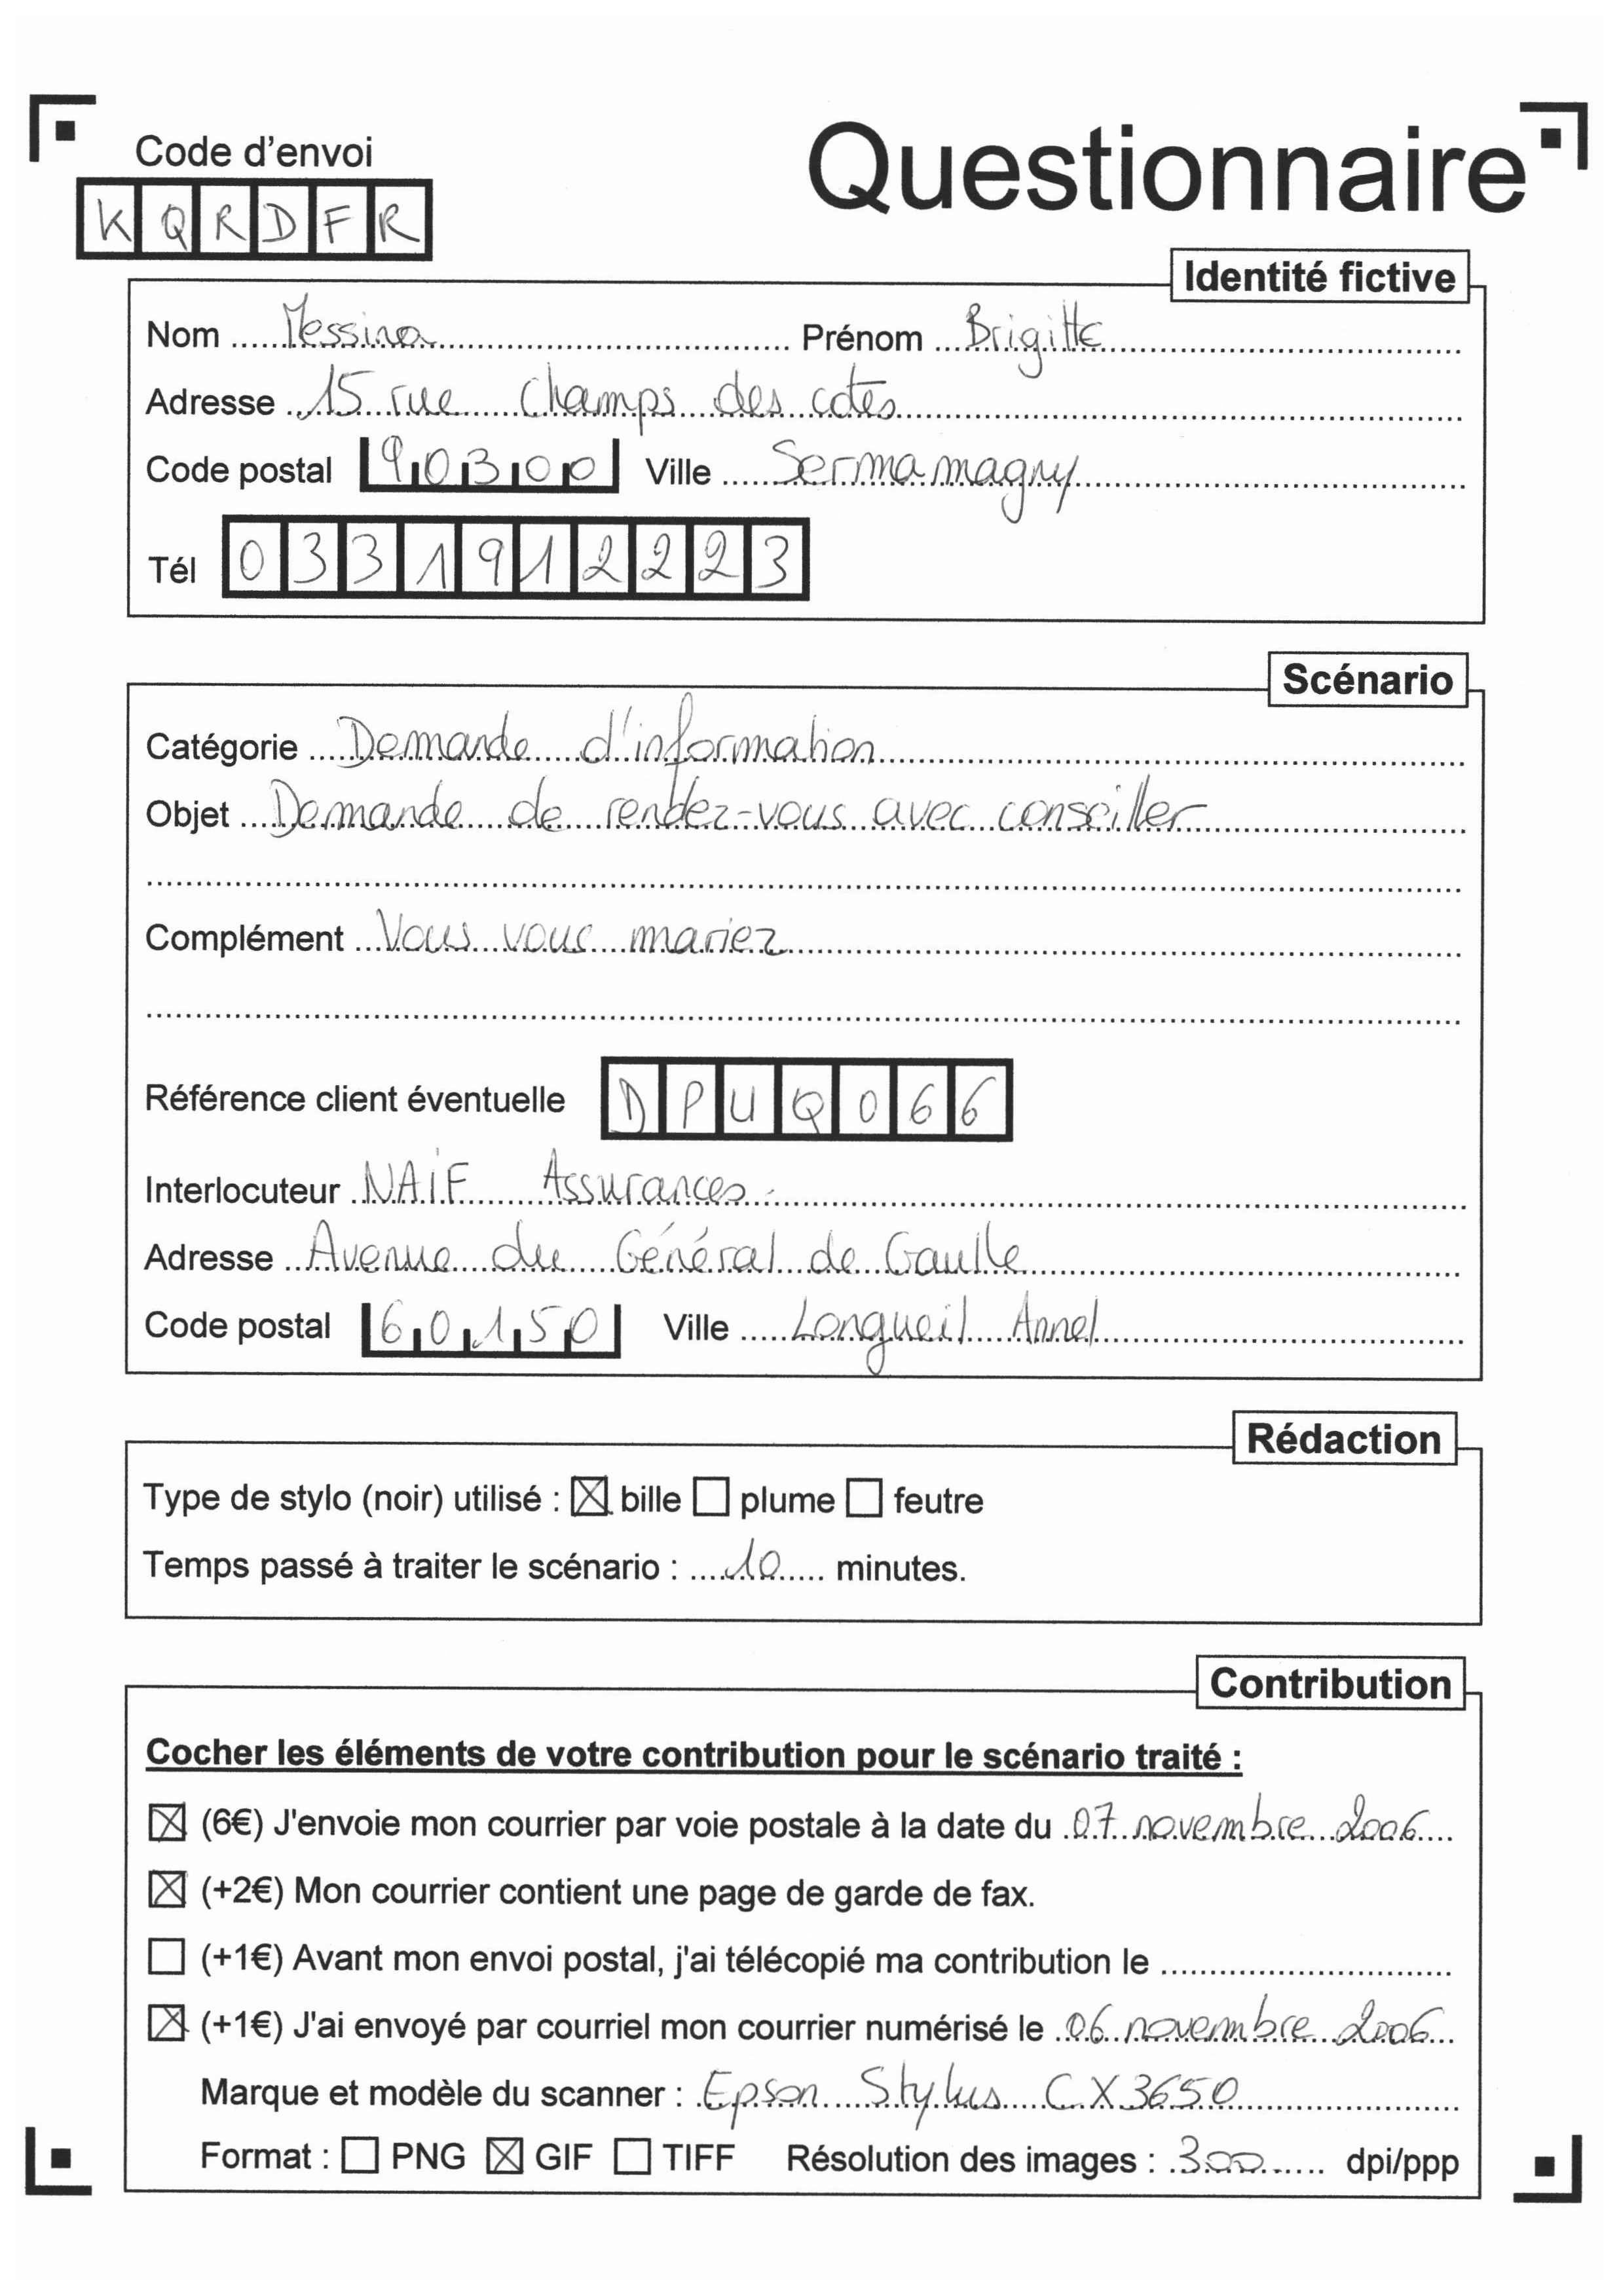 Code d'envoi
Questionnaire
KQRDFR
Identité fictive
Nom Messina Prénom Brigitte
Adresse 15 rue Champs des cotes
Code postal 90300 Ville Sermamagny
Tél 0331912223
Scénario
Catégorie Demande d'information
Objet Demande de rendez-vous avec conseiller
Complément Vous vous mariez
Référence client éventuelle DPUQ066
Interlocuteur NAIF Assurances.
Adresse Avenue du Général de Gaulle
Code postal 60150 Ville Longueil Annel
Rédaction
Type de stylo (noir) utilisé : ☒ bille ☐ plume ☐ feutre
Temps passé à traiter le scénario : 10 minutes.
Contribution
Cocher les éléments de votre contribution pour le scénario traité :
☒ (6€) J'envoie mon courrier par voie postale à la date du 07 novembre 2006
☒ (+2€) Mon courrier contient une page de garde de fax.
☐ (+1€) Avant mon envoi postal, j'ai télécopié ma contribution le
☒ (+1€) J'ai envoyé par courriel mon courrier numérisé le 06 novembre 2006
Marque et modèle du scanner : Epson Stylus CX3650
Format : ☐ PNG ☒ GIF ☐ TIFF Résolution des images : 300 dpi/ppp